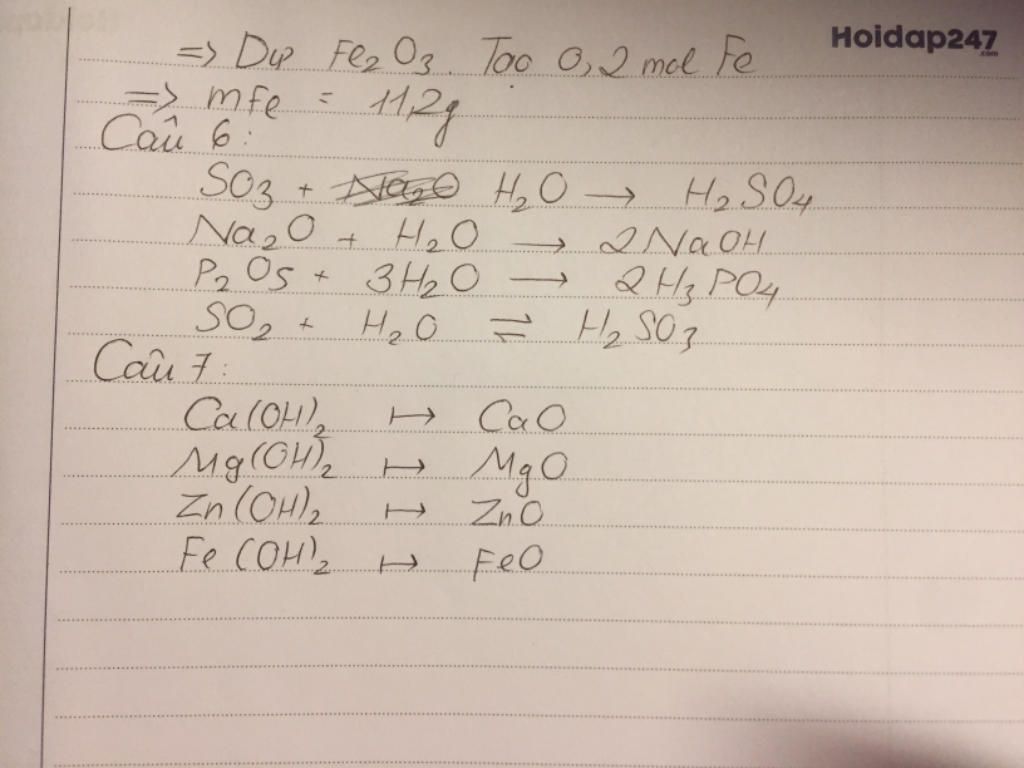 Hoidap247
.com
=> Dư Fe₂O₃. Tạo 0,2 mol Fe
=> mFe = 11,2g
Câu 6:
SO₃ + H₂O → H₂SO₄
Na₂O + H₂O → 2NaOH
P₂O₅ + 3H₂O → 2H₃PO₄
SO₂ + H₂O ⇌ H₂SO₃
Câu 7:
Ca(OH)₂ ↦ CaO
Mg(OH)₂ ↦ MgO
Zn(OH)₂ ↦ ZnO
Fe(OH)₂ ↦ FeO